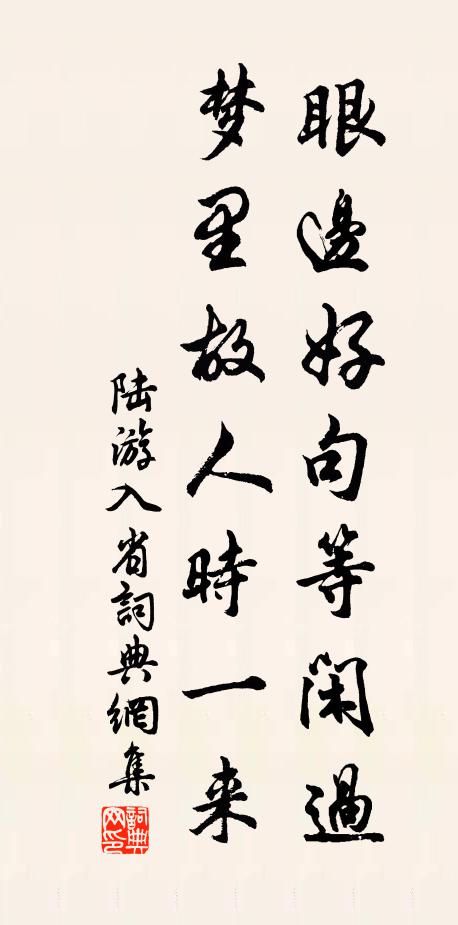 眼邊好句等閑過
梦里故人時一来
陆游入省詞典網集
詞典網印